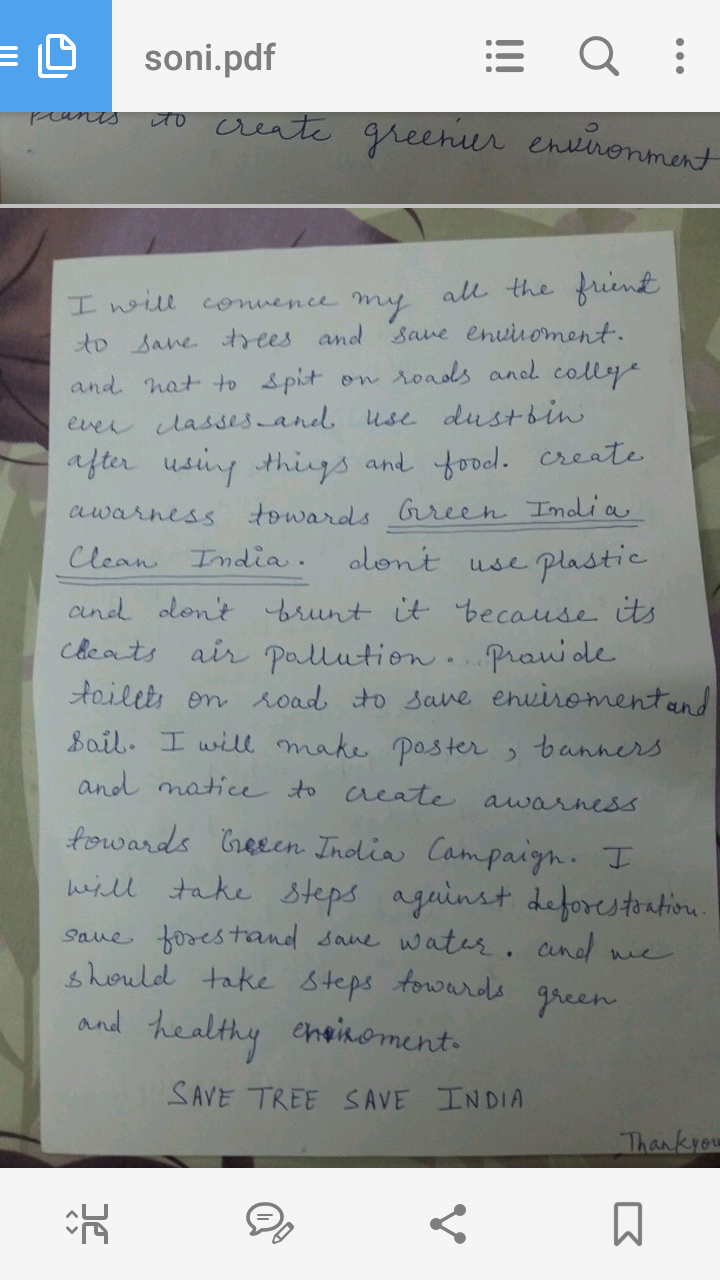 soni.pdf
plants to create greenier environment
I will convence my all the friend
to save trees and save enviroment.
and not to spit on roads and college
ever classes and use dustbin
after using things and food. create
awarness towards Green India
Clean India. don't use plastic
and don't brunt it because its
creats air pollution. provide
toilets on road to save enviroment and
Soil. I will make poster, banners
and notice to create awarness
towards Green India Campaign. I
will take steps against deforestration.
save forest and save water. and we
should take steps towards green
and healthy enviroment.
SAVE TREE SAVE INDIA
Thankyou